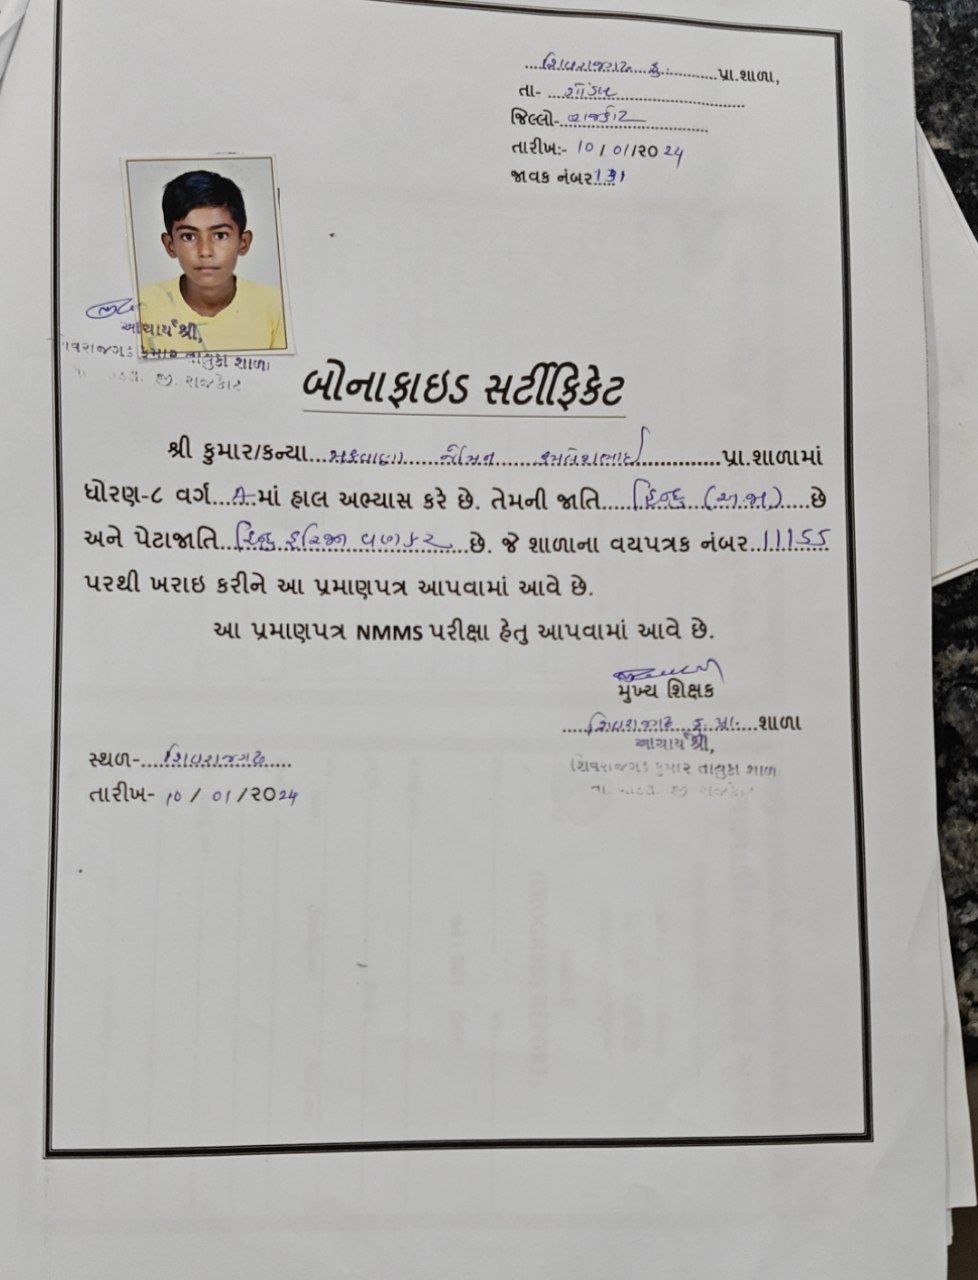 શિવરાજગઢ કુ. પ્રા.શાળા,
તા- ગોંડલ
જિલ્લો- રાજકોટ
તારીખ:- 10/01/2024
જાવક નંબર 131
આચાર્ય શ્રી,
શિવરાજગઢ કુમાર તાલુકા શાળા
જી. રાજકોટ
બોનાફાઇડ સર્ટીફિકેટ
શ્રી કુમાર/કન્યા મકવાણા નૈમિન કમલેશભાઈ પ્રા.શાળામાં
ધોરણ-૮ વર્ગ A માં હાલ અભ્યાસ કરે છે. તેમની જાતિ હિન્દુ (અ.જા) છે
અને પેટાજાતિ હિન્દુ હરિજન વણકર છે. જે શાળાના વયપત્રક નંબર 11155
પરથી ખરાઇ કરીને આ પ્રમાણપત્ર આપવામાં આવે છે.
આ પ્રમાણપત્ર NMMS પરીક્ષા હેતુ આપવામાં આવે છે.
મુખ્ય શિક્ષક
શિવરાજગઢ કુ. પ્રા. શાળા
આચાર્ય શ્રી,
શિવરાજગઢ કુમાર તાલુકા શાળા
તા. જી. રાજકોટ
સ્થળ- શિવરાજગઢ
તારીખ- 10/01/2024